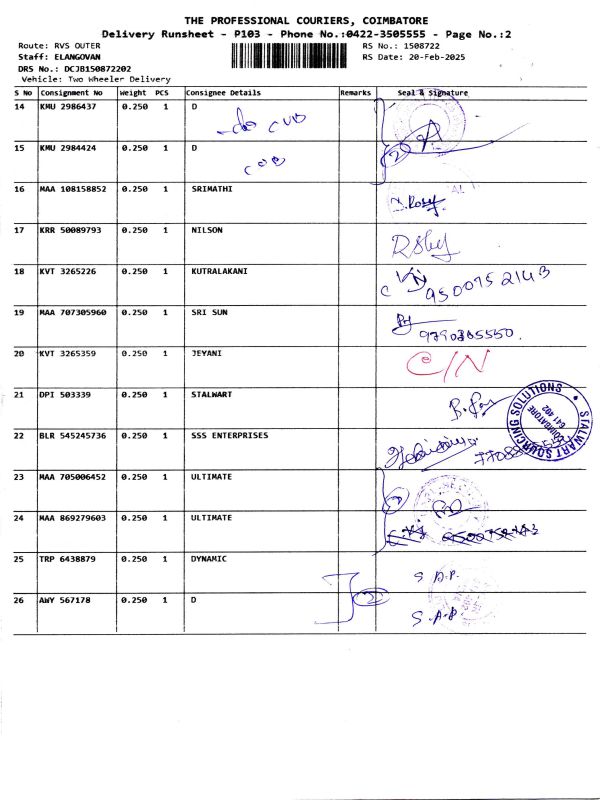 THE PROFESSIONAL COURIERS, COIMBATORE
Delivery Runsheet - P103 - Phone No.:0422-3505555 - Page No.:2
Route: RVS OUTER RS No.: 1508722
Staff: ELANGOVAN RS Date: 20-Feb-2025
DRS No.: DCJB150872202
Vehicle: Two Wheeler Delivery
S No Consignment No Weight PCS Consignee Details Remarks Seal & Signature
14 KMU 2986437 0.250 1 D
15 KMU 2984424 0.250 1 D
16 MAA 108158852 0.250 1 SRIMATHI
17 KRR 50089793 0.250 1 NILSON
18 KVT 3265226 0.250 1 KUTRALAKANI
9500752143
19 MAA 707305960 0.250 1 SRI SUN
9790385550.
20 KVT 3265359 0.250 1 JEYANI C/N
21 DPI 503339 0.250 1 STALWART
STALWART SOURCING SOLUTIONS
COIMBATORE
641 402
22 BLR 545245736 0.250 1 SSS ENTERPRISES
23 MAA 705006452 0.250 1 ULTIMATE
24 MAA 869279603 0.250 1 ULTIMATE
25 TRP 6438879 0.250 1 DYNAMIC
26 AWY 567178 0.250 1 D
S.A.P.